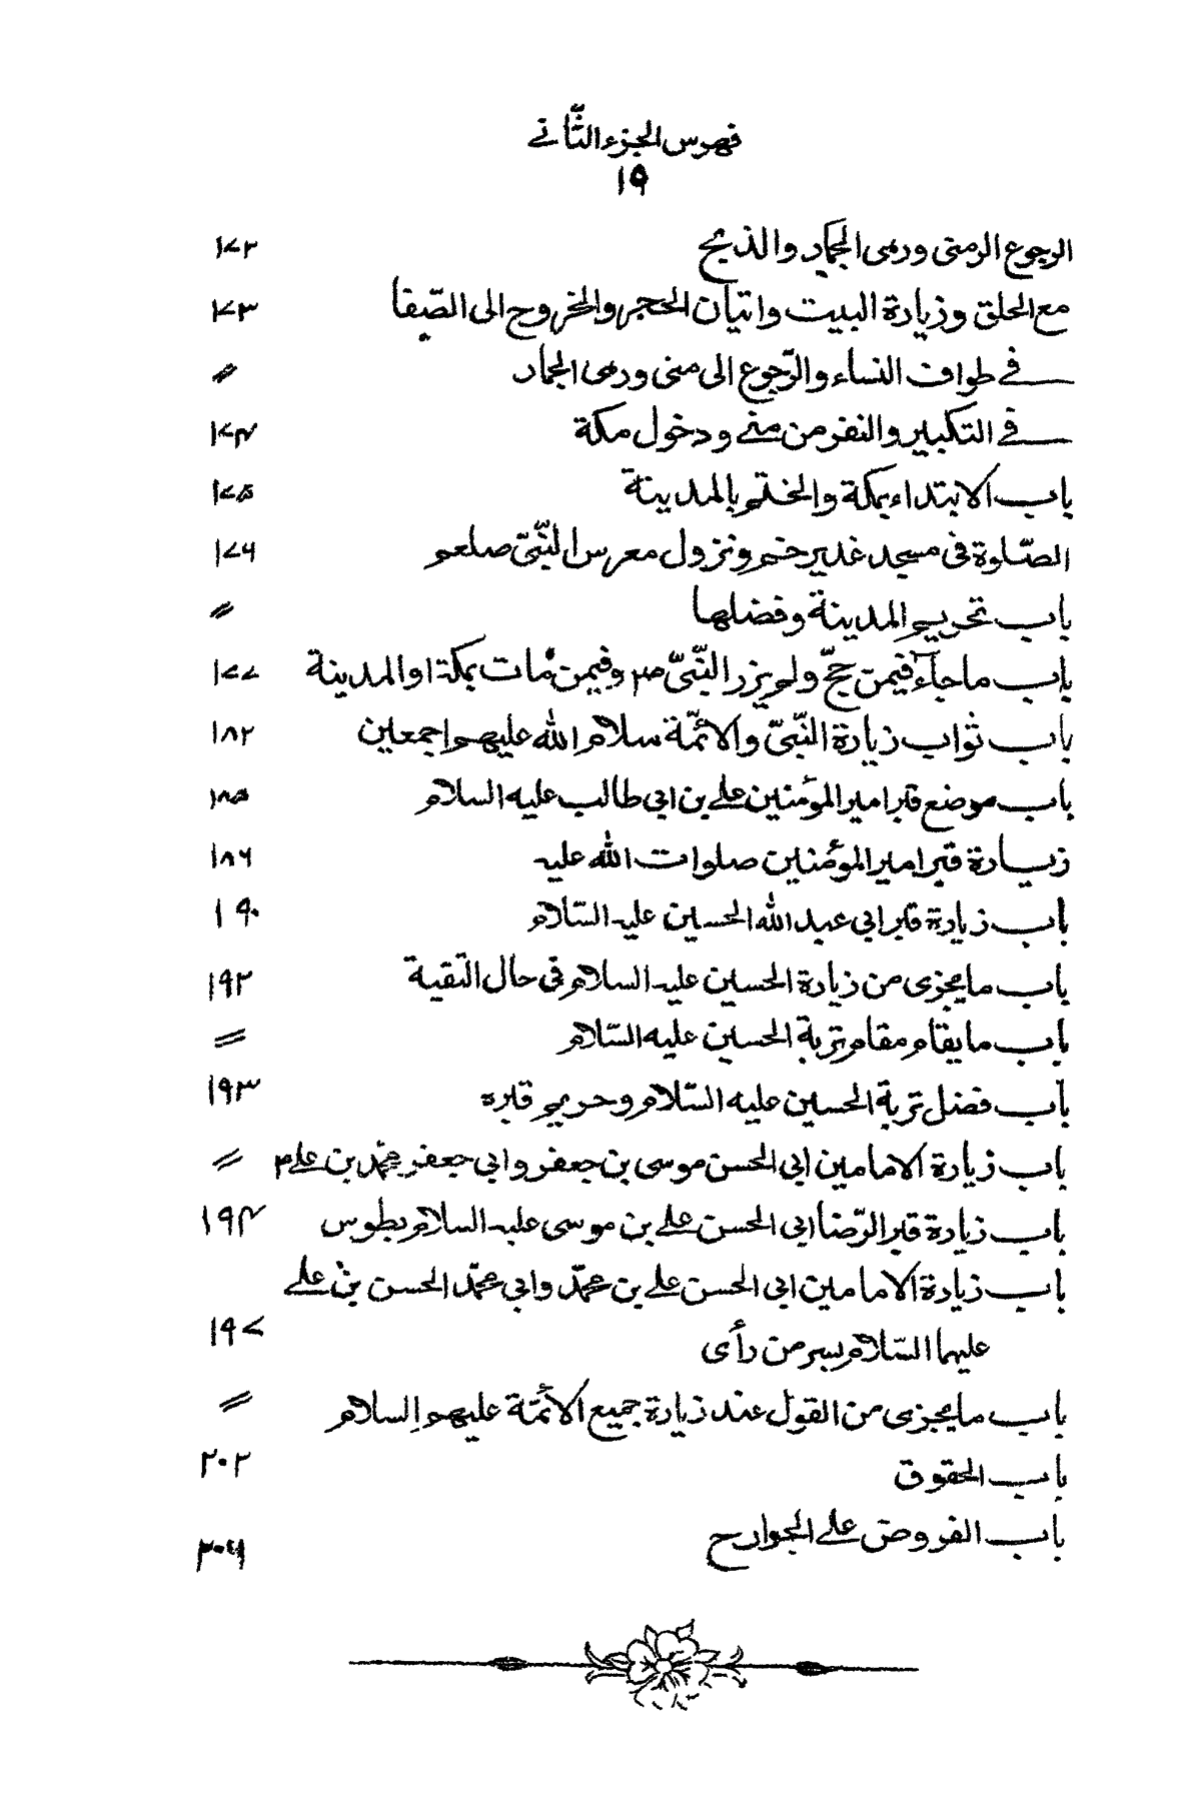 فهرس الجزء الثّاني
١٩
الرجوع الى منى ورمى الجمار والذبح ١٧٢
مع الحلق وزيارة البيت واتيان الحجر والخروج الى الصّفا ١٧٣
في طواف النساء والرّجوع الى منى ورمى الجمار 〃
في التكبير والنفر من منى ودخول مكة ١٧۴
باب الابتداء بمكة والختم بالمدينة ١٧۵
الصّلوة في مسجد غدير خم ونزول معرس النّبيّ صلعم ١٧۶
باب تحريم المدينة وفضلها 〃
باب ما جآء فيمن حجّ ولم يزر النّبيّ ص وفيمن مات بمكة او المدينة ١٧٧
باب ثواب زيارة النّبيّ والائمّة سلام الله عليهم اجمعين ١٨٢
باب موضع قبر امير المؤمنين علي بن ابي طالب عليه السلام ١٨۵
زيارة قبر امير المؤمنين صلوات الله عليه ١٨۶
باب زيارة قبر ابي عبد الله الحسين عليه السّلام ١٩٠
باب ما يجزى من زيارة الحسين عليه السلام في حال التقية ١٩٢
باب ما يقام مقام تربة الحسين عليه السّلام 〃
باب فضل تربة الحسين عليه السّلام وحريم قبره ١٩٣
باب زيارة الامامين ابي الحسن موسى بن جعفر وابي جعفر محمّد بن علي ٣ 〃
باب زيارة قبر الرّضا ابي الحسن علي بن موسى عليه السلام بطوس ١٩۴
باب زيارة الامامين ابي الحسن علي بن محمّد وابي محمّد الحسن بن علي
عليهما السّلام بسر من رأى ١٩٧
باب ما يجزى من القول عند زيارة جميع الأئمّة عليهم السلام 〃
باب الحقوق ٢٠٢
باب الفروض على الجوارح ٢٠۶